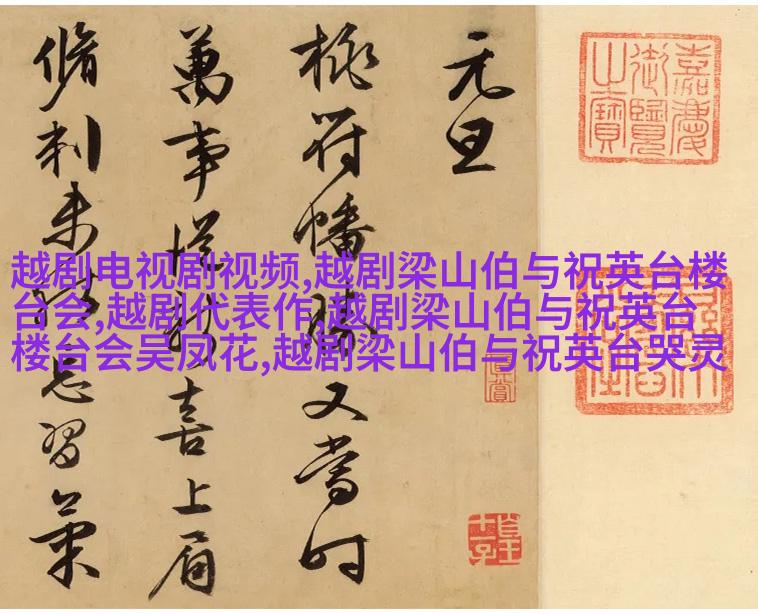 嘉慶御覽之寶
元旦
桃符幡勝又當時
萬事從新喜上眉
脩刺未能忘習
越剧电视剧视频,越剧梁山伯与祝英台楼
台会,越剧代表作,越剧梁山伯与祝英台
楼台会吴凤花,越剧梁山伯与祝英台哭灵